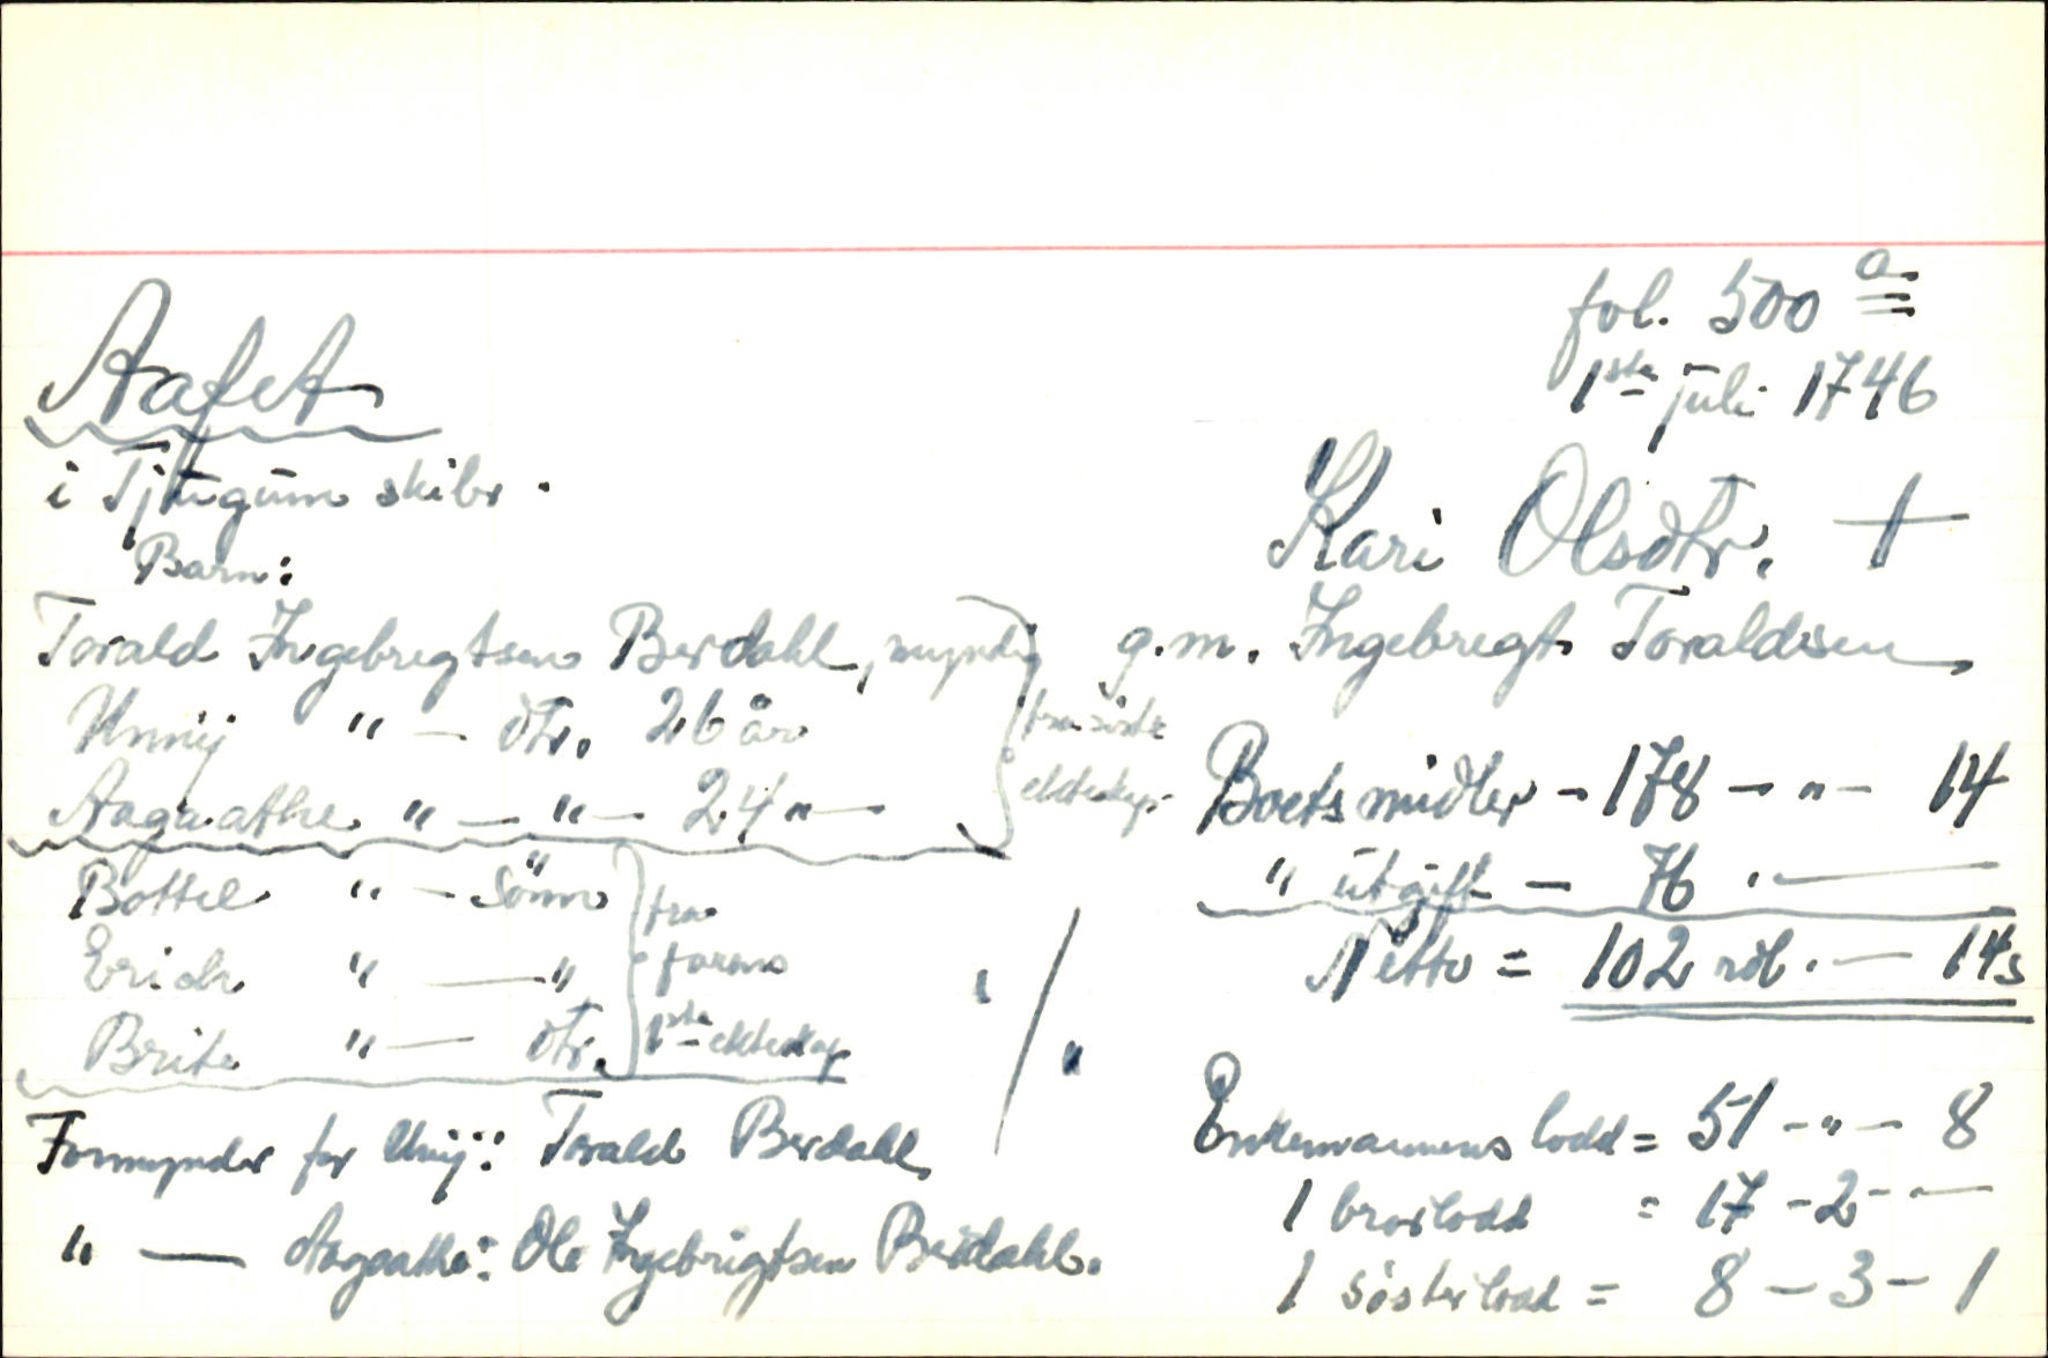 fol. 500 a
1ste juli 1746
Aafet
i Tjugum skibr.
Kari Olsdtr. †
g.m. Ingebregt Toraldsen
Barn:
Torald Ingebregtsen Berdahl, myndig
Unnij " — dtr. 26 år
Aagaathe " — " — 24 " —
fra siste
ekteskap
Bottel " — Sönn
Erich " — "
Brite " — dtr.
fra
farens
1ste ekteskap
Formynder for Unij: Torald Berdahl,
" — Aagaathe: Ole Ingebrigtsen Berdahl.
Boets midler - 178 - " - 14
" utgift - 76 . —
Netto = 102 rdl. — 14s
Enkemannens lodd = 51 - " - 8
1 brorlodd = 17 - 2 - " —
1 sösterlodd = 8 - 3 - 1